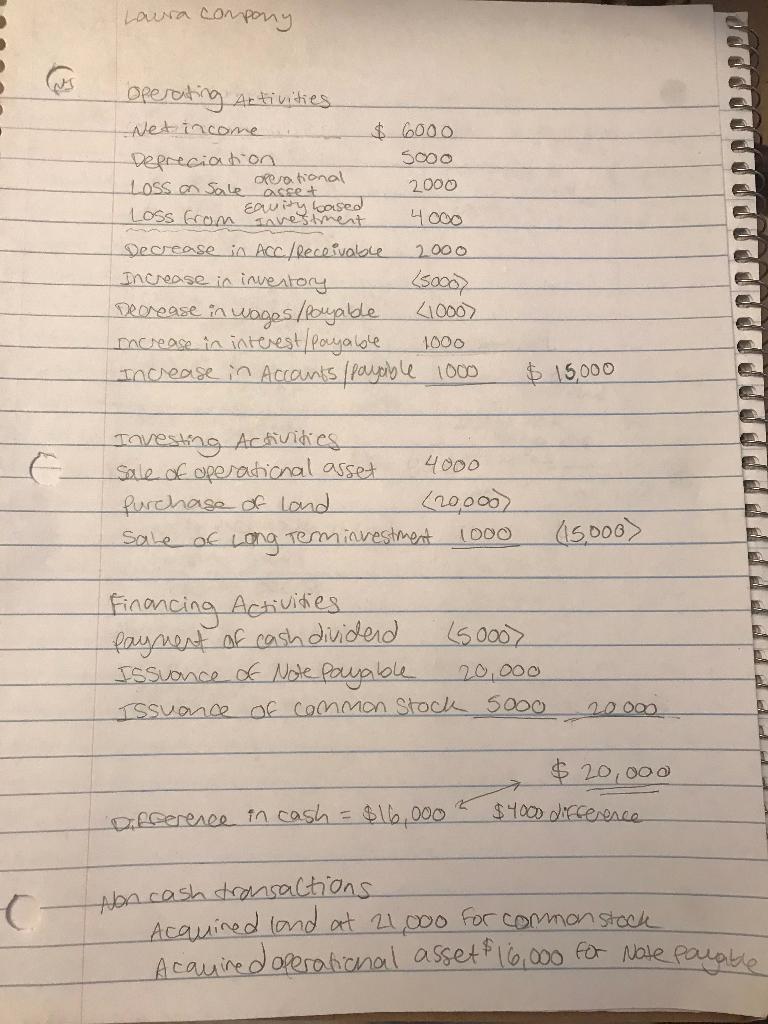 Laura Company
Operating Activities
Net income $ 6000
Depreciation 5000
Loss on Sale operational asset 2000
Loss from Equity based Investment 4000
Decrease in Acc/Receivable 2000
Increase in inventory <5000>
Decrease in wages/payable <1000>
Increase in interest/payable 1000
Increase in Accounts/payable 1000 $ 15,000
Investing Activities
Sale of operational asset 4000
Purchase of land <20,000>
Sale of Long Term investment 1000 <15,000>
Financing Activities
Payment of cash dividend <5000>
Issuance of Note Payable 20,000
Issuance of common stock 5000 20 000
$ 20,000
Difference in cash = $16,000 $4000 difference
Non cash transactions
Acquired land at 21,000 for common stock
Acquired operational asset $16,000 for Note payable